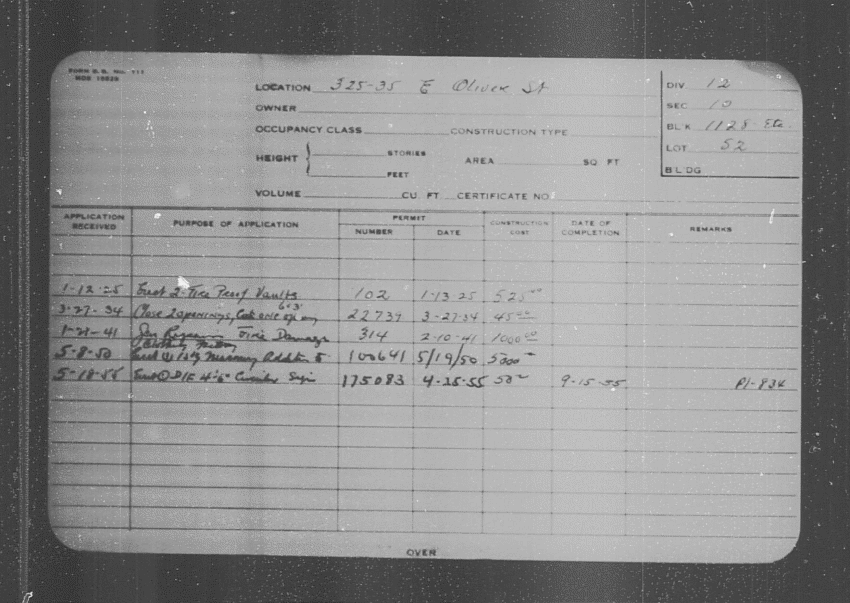 FORM B.B. No. 111
LOCATION 325-35 E Oliver St
DIV 12
OWNER
SEC 10
OCCUPANCY CLASS CONSTRUCTION TYPE
BL'K 1128-Etc.
HEIGHT STORIES AREA SQ FT
LOT 52
FEET
BLDG
VOLUME CU FT CERTIFICATE NO
APPLICATION RECEIVED PURPOSE OF APPLICATION PERMIT NUMBER DATE CONSTRUCTION COST DATE OF COMPLETION REMARKS
1-12-25 Erect 2 Fire Proof Vaults 102 1-13-25 525
3-27-34 Close 2 openings, Cut one op 22739 3-27-34 45
1-21-41 Fire Damage 314 2-10-41 1000
5-8-50 Erect Masonry Addit 100641 5/19/50 5300
5-18-55 Erect D/F 4'6" Circular Sign 175083 4-25-55 50 9-15-55 P1-834
OVER